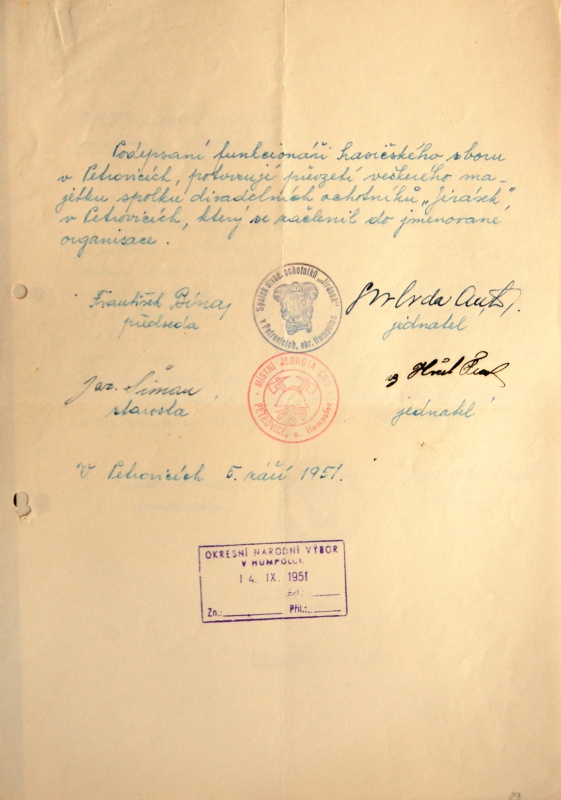 Podepsaní funkcionáři hasičského sboru
v Petrovicích, potvrzují převzetí veškerého ma-
jetku spolku divadelních ochotníků „Jirásek“,
v Petrovicích, který se začlenil do jmenované
organisace.
František
předseda
Spolek divad. ochotníků „Jirásek“
v Petrovicích, okr. Humpolec
jednatel
Jar. Šiman
starosta
MÍSTNÍ JEDNOTA ČSH
PETROVICE, p. Humpolec
jednatel
V Petrovicích 5. září 1951.
OKRESNÍ NÁRODNÍ VÝBOR
V HUMPOLCI.
14. IX. 1951
Zn.: Příl.: